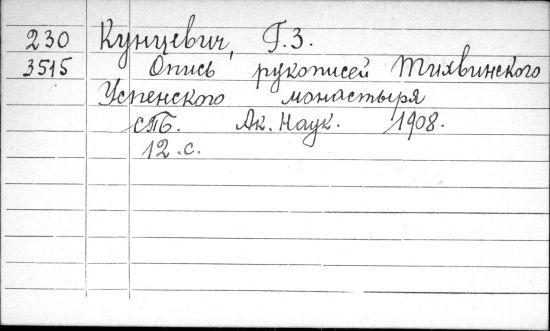 230 Кунцевич, Г.З.
3515 Опись рукописей Тихвинского
Успенского монастыря
СПБ. Ак. Наук. 1908.
12 с.